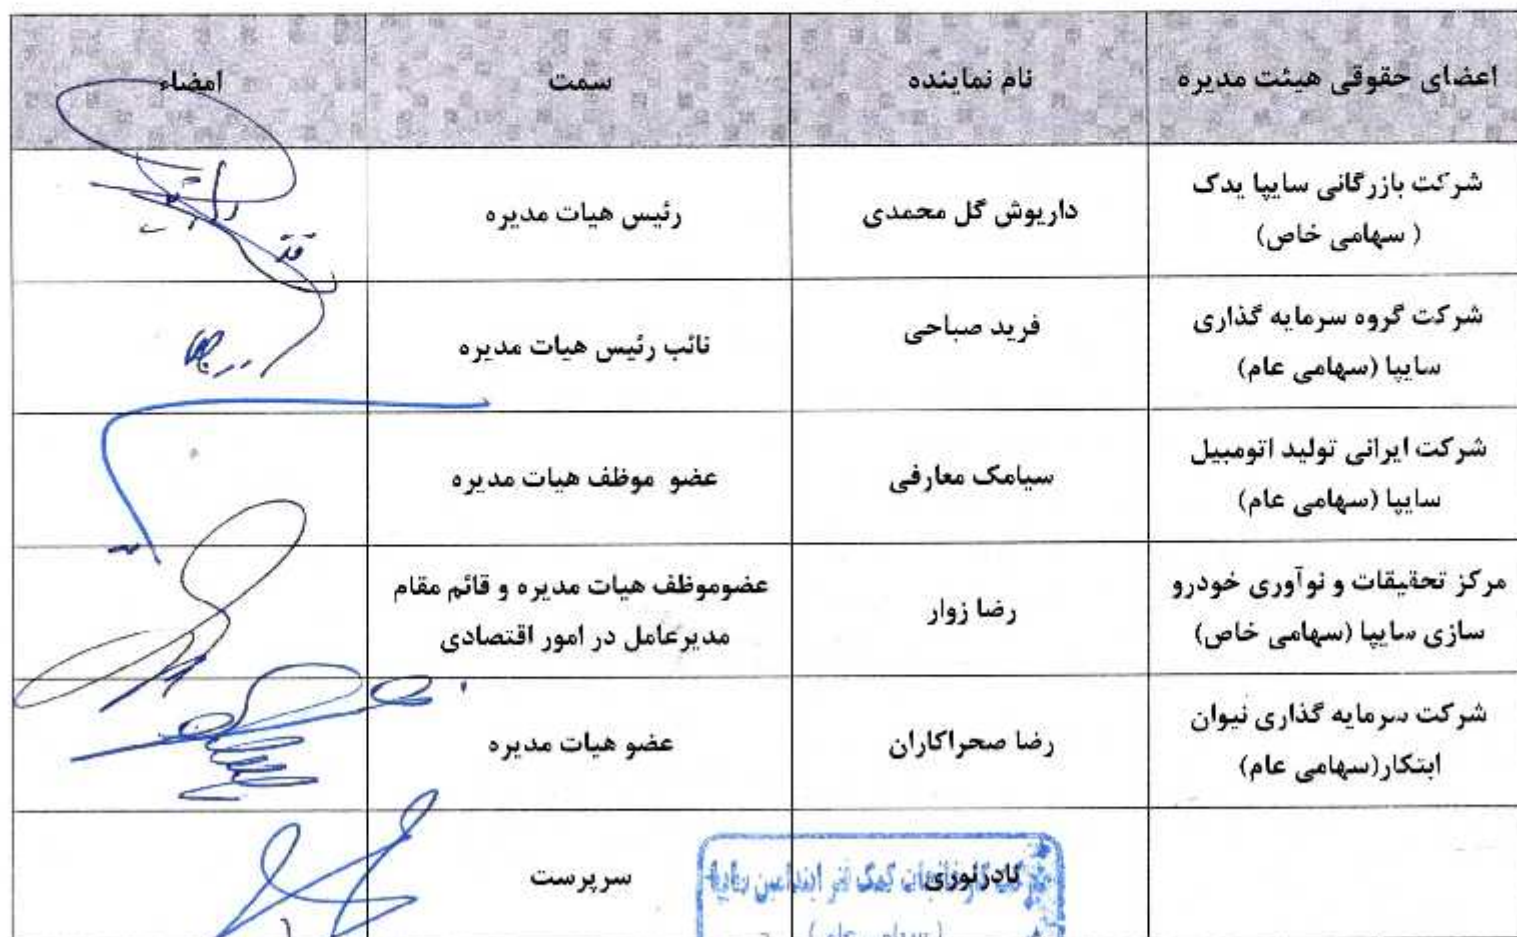 اعضای حقوقی هیئت مدیره نام نماینده سمت امضاء
شرکت بازرگانی سایپا یدک
( سهامی خاص)
داریوش گل محمدی
رئیس هیات مدیره
شرکت گروه سرمایه گذاری
سایپا (سهامی عام)
فرید صباحی
نائب رئیس هیات مدیره
شرکت ایرانی تولید اتومبیل
سایپا (سهامی عام)
سیامک معارفی
عضو موظف هیات مدیره
مرکز تحقیقات و نوآوری خودرو
سازی سایپا (سهامی خاص)
رضا زوار
عضوموظف هیات مدیره و قائم مقام
مدیرعامل در امور اقتصادی
شرکت سرمایه گذاری نیوان
ابتکار(سهامی عام)
رضا صحراکاران
عضو هیات مدیره
نادرنوری
سرپرست
کمک فنر ایندامین سایپا
(سهامی عام)